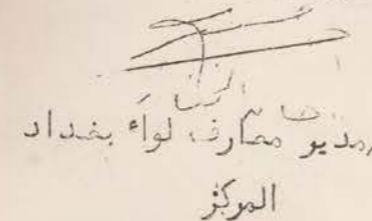 مدير معارف لواء بغداد
المركز